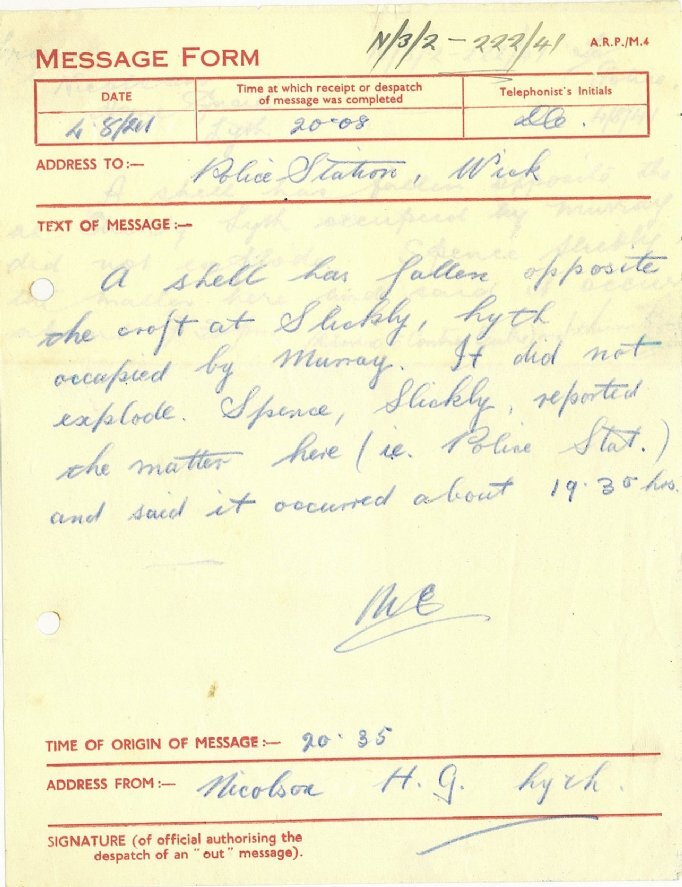 N/3/2 - 222/41
A.R.P./M.4
MESSAGE FORM
DATE
Time at which receipt or despatch
of message was completed
Telephonist's Initials
4.8/41
20.08
ADDRESS TO:—
Police Station, Wick
TEXT OF MESSAGE:—
A shell has fallen opposite
the croft at Slickly, Lyth
occupied by Murray. It did not
explode. Spence, Slickly, reported
the matter here (ie. Police Stat.)
and said it occurred about 19.30 hrs.
TIME OF ORIGIN OF MESSAGE:— 20.35
ADDRESS FROM:— Nicolson H.G. Lyth.
SIGNATURE (of official authorising the
despatch of an "out" message).